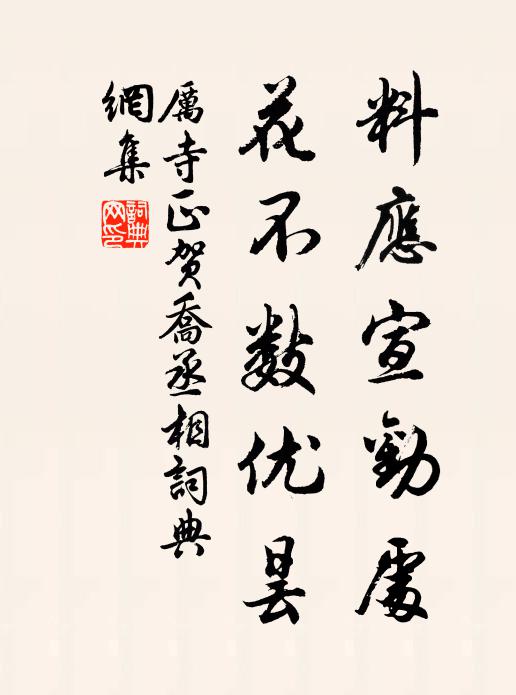 料應宣勸處
花不数优昙
厲寺正賀喬丞相詞典
網集
詞典網印